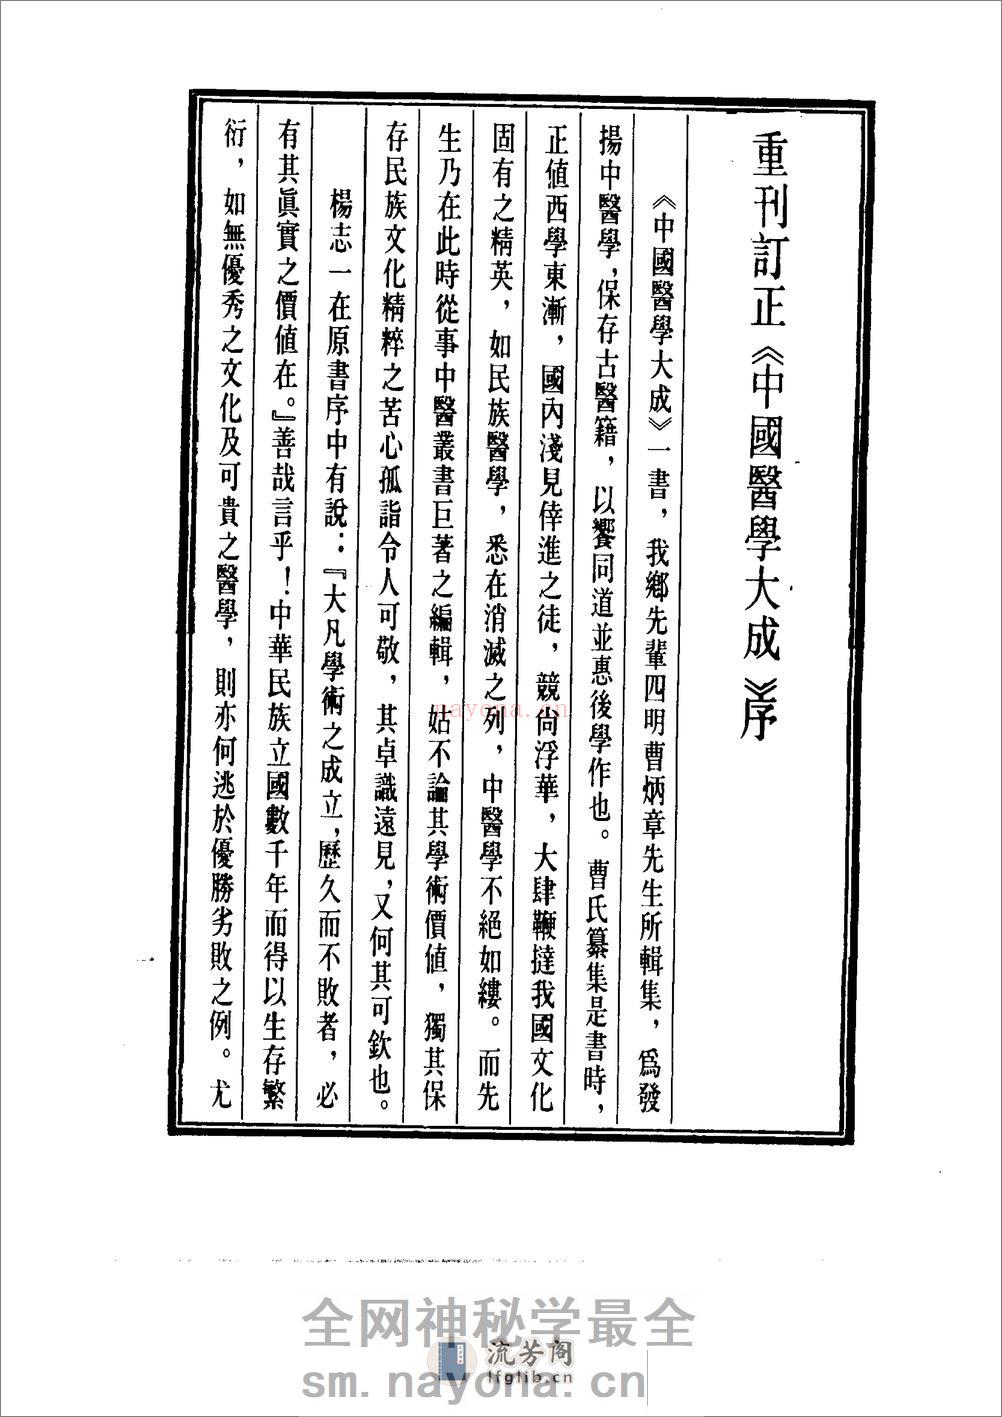 重刊訂正《中國醫學大成》序
《中國醫學大成》一書，我鄉先輩四明曹炳章先生所輯集，爲發
揚中醫學，保存古醫籍，以饗同道並惠後學作也。曹氏纂集是書時，
正值西學東漸，國內淺見倖進之徒，競尚浮華，大肆鞭撻我國文化
固有之精英，如民族醫學，悉在消滅之列，中醫學不絕如縷。而先
生乃在此時從事中醫叢書巨著之編輯，姑不論其學術價值，獨其保
存民族文化精粹之苦心孤詣令人可敬，其卓識遠見，又何其可欽也。
楊志一在原書序中有說：『大凡學術之成立，歷久而不敗者，必
有其眞實之價値在。』善哉言乎！中華民族立國數千年而得以生存繁
衍，如無優秀之文化及可貴之醫學，則亦何逃於優勝劣敗之例。尤
nayona.cn
全网神秘学最全
流芳阁
lfglib.cn
sm.nayona.cn